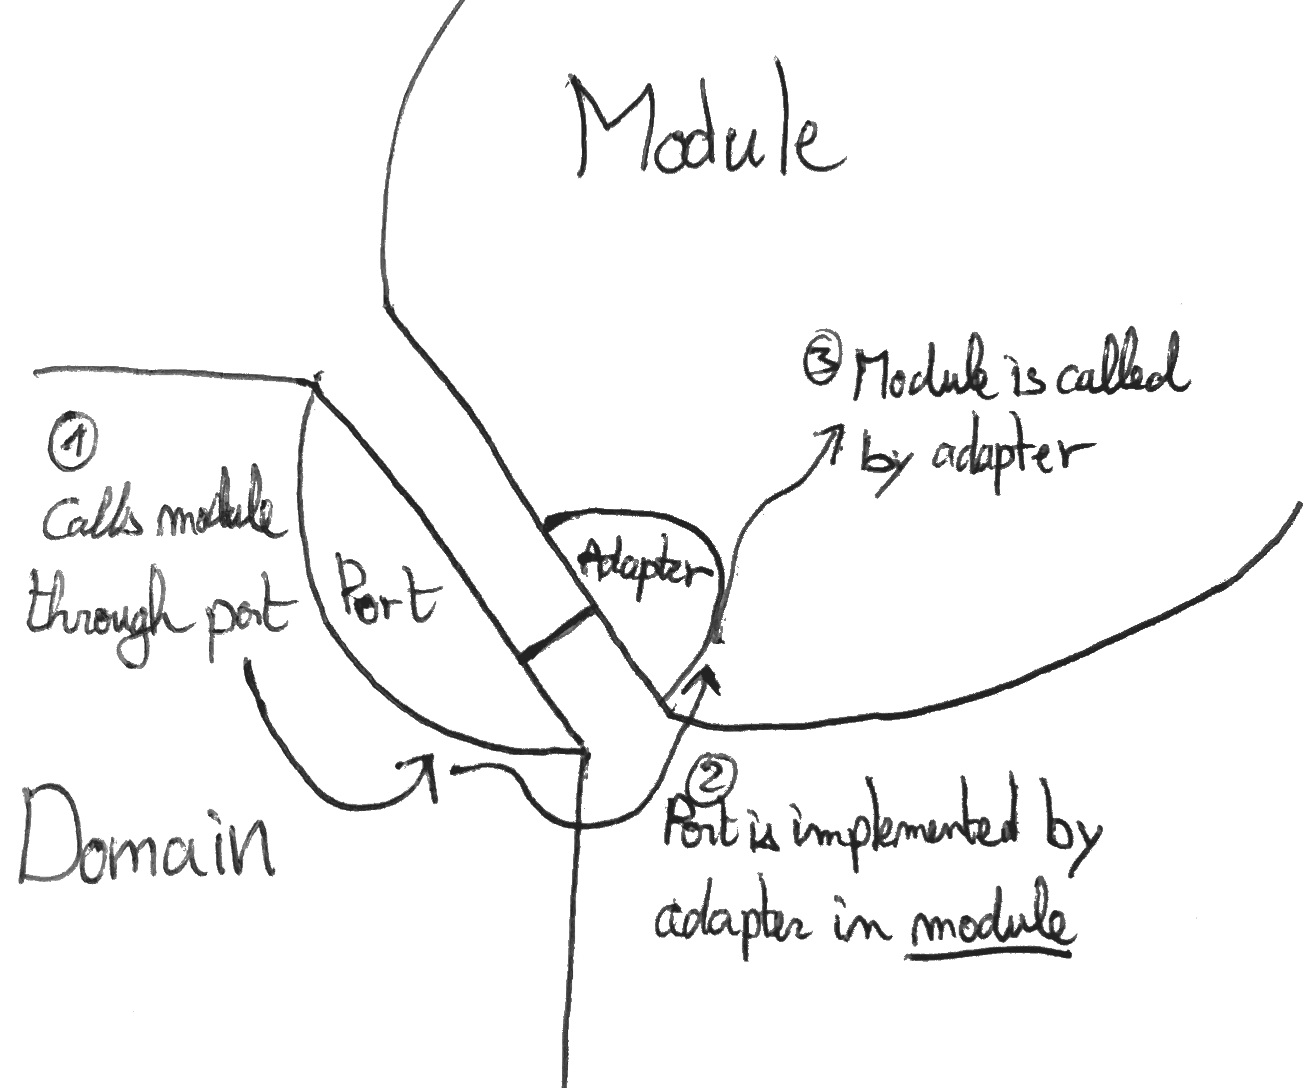 Module
③ Module is called
by adapter
①
Calls module
through port
Port
Adapter
Domain
②
Port is implemented by
adapter in module